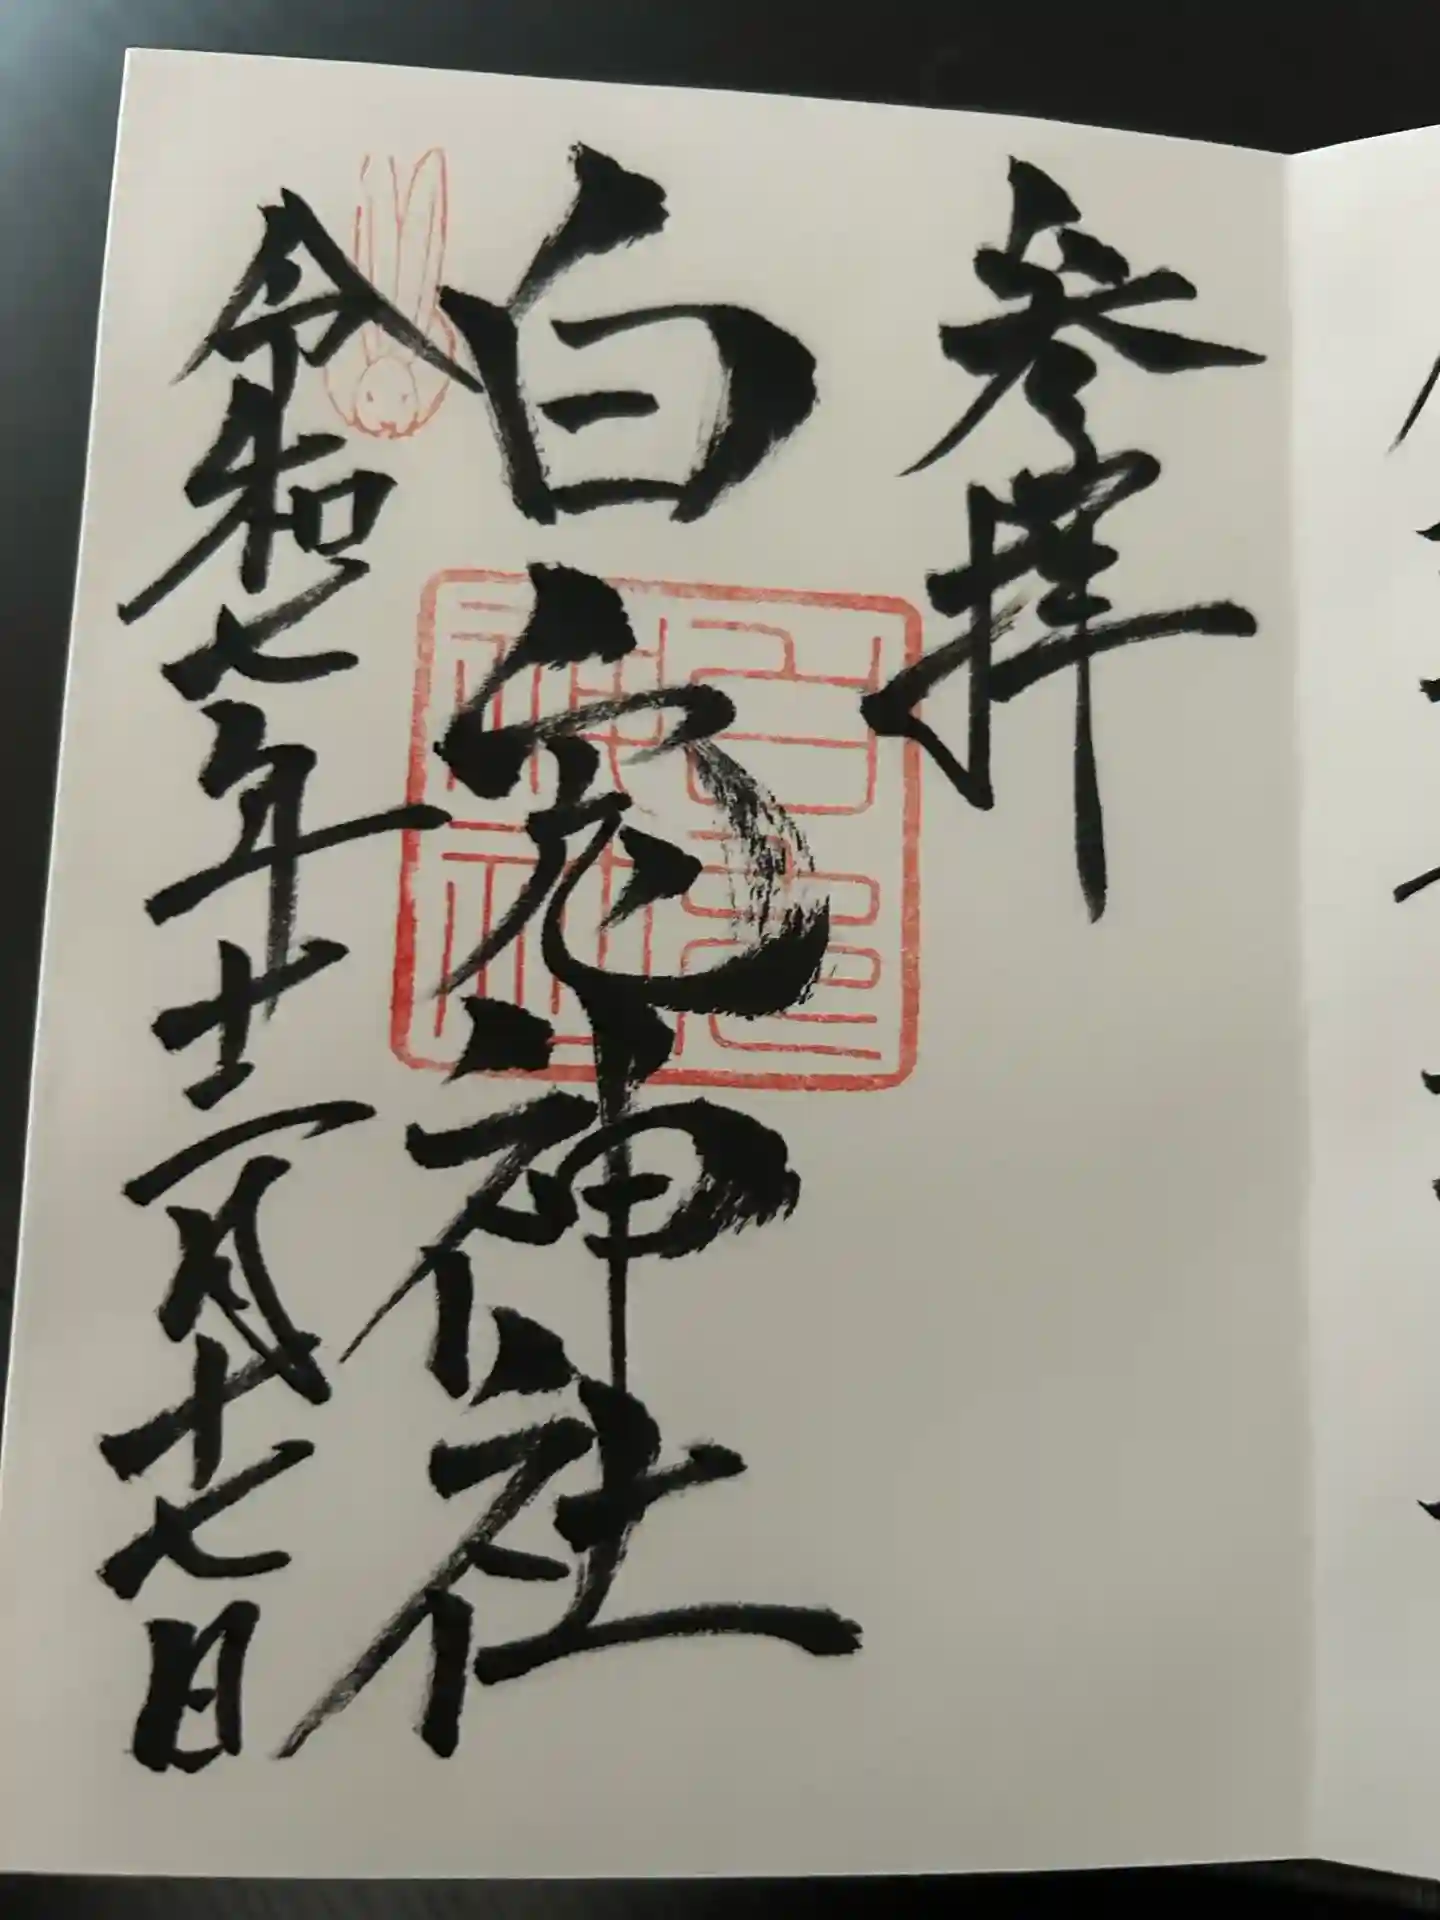 参拝
白兎神社
令和七年十二月十七日
白兎神社